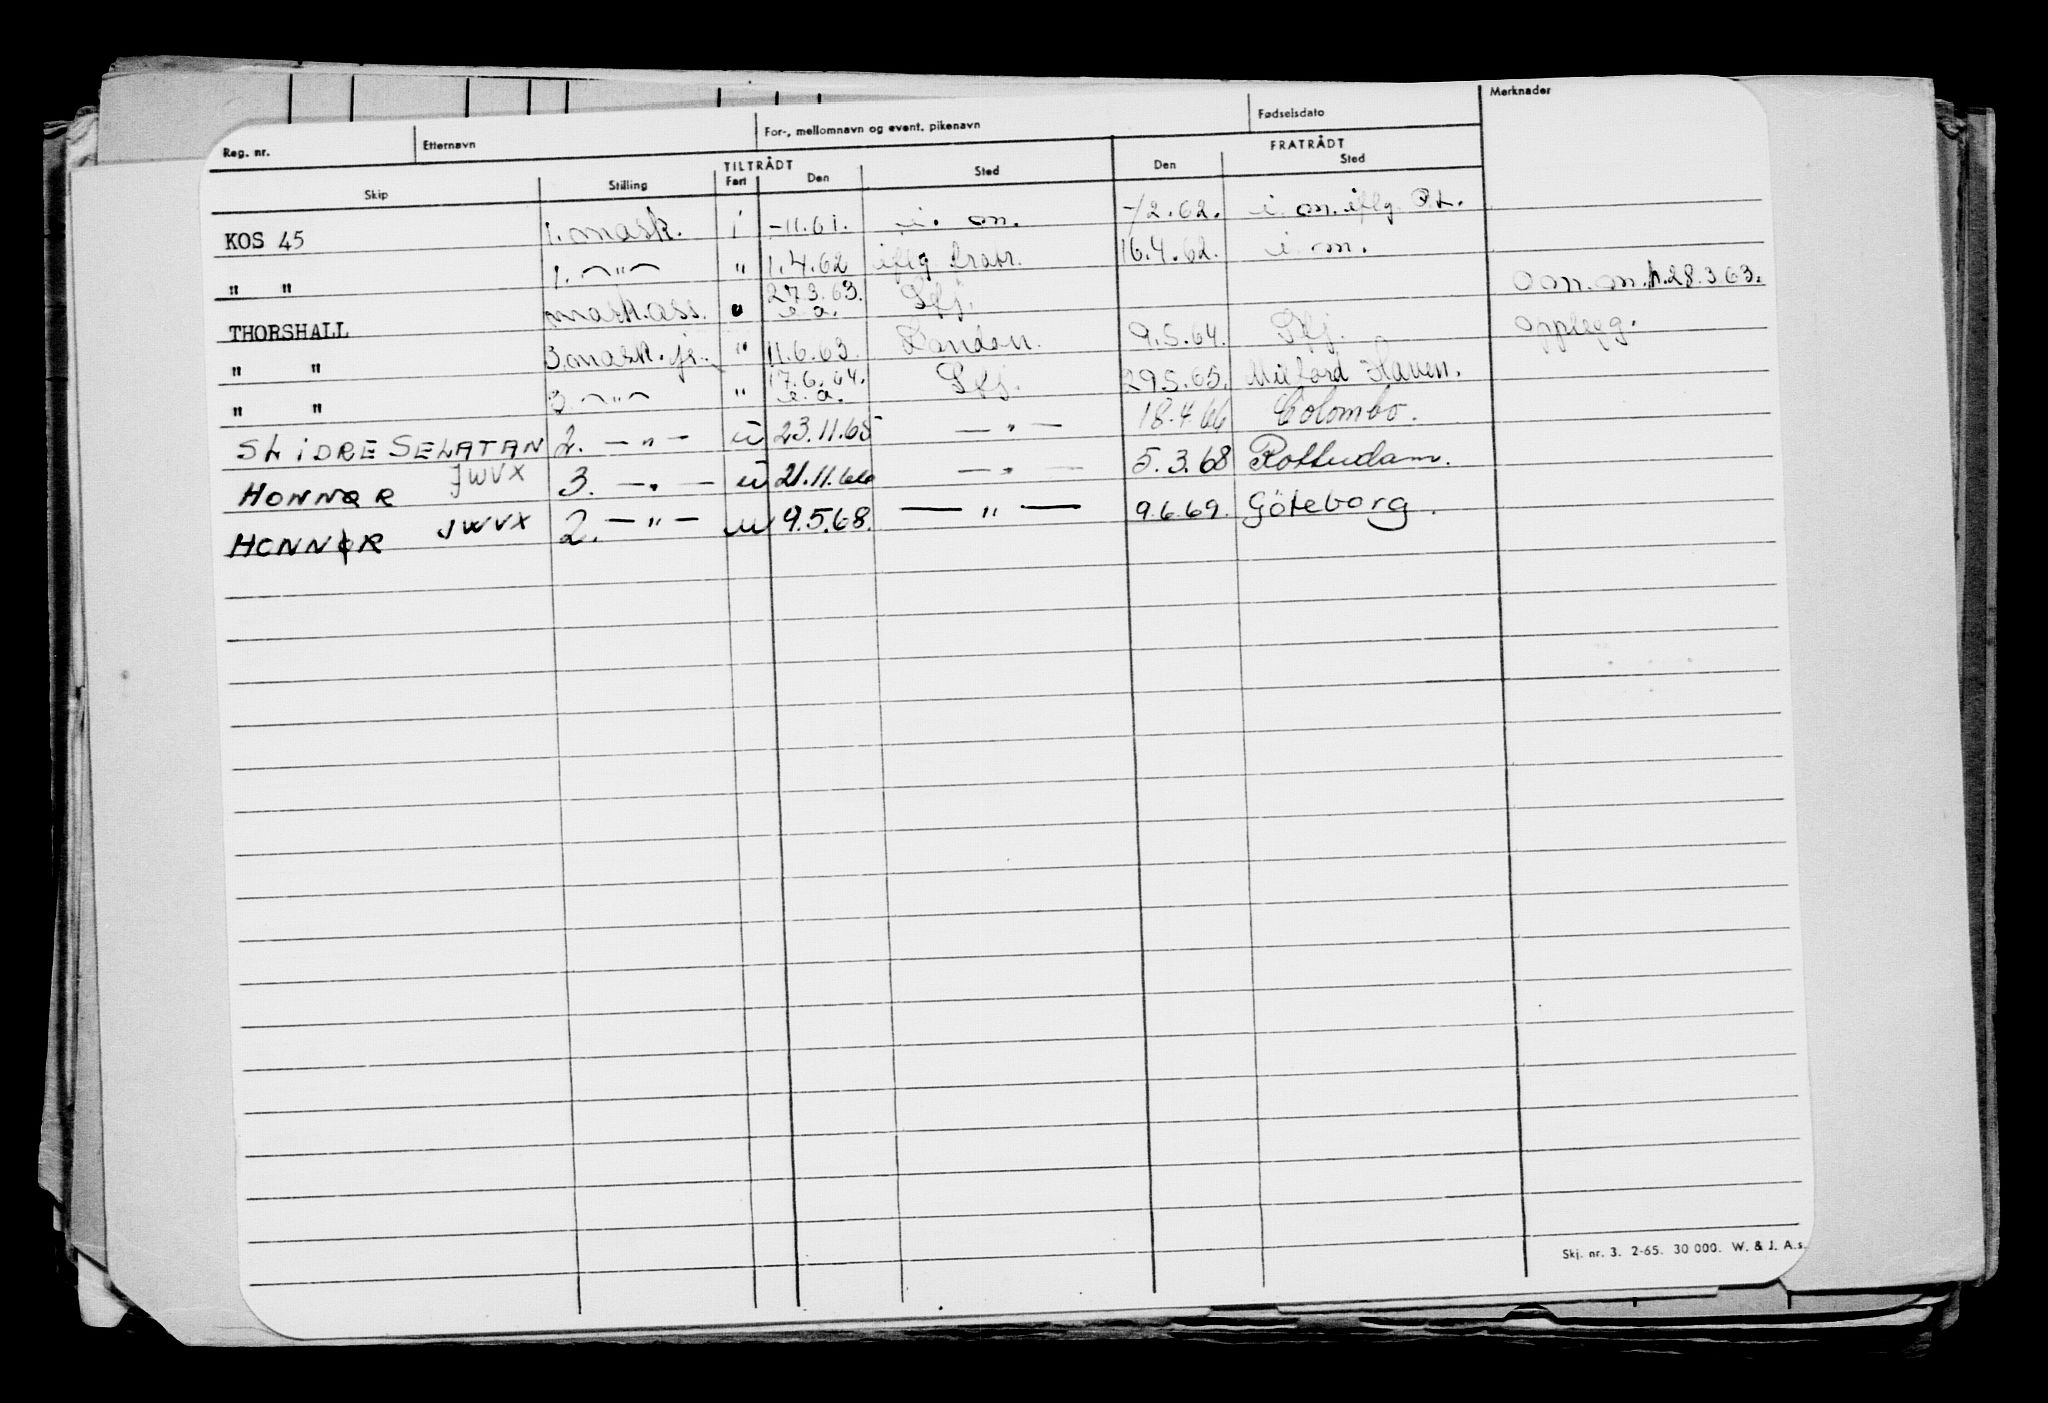 Reg. nr. Etternavn For-, mellomnavn og event. pikenavn Fødselsdato Merknader
TILTRÅDT FRATRÅDT
Skip Stilling Fart Den Sted Den Sted
KOS 45 1. mask. i -11.61. i. m. -/2.62. i. m. iflg.
" " 1. —"— " 1.4.62 iflg fratr. 16.4.62. i. m.
THORSHALL mask.ass. " 27.3.63. e.a. Sfj. Oon. m. 28.3.63.
" " 3.mask. jr. " 11.6.63. London. 9.5.64. Sfj. Opplegg.
" " 3. —"— " 17.6.64. e.a. Sfj. 29.5.65. Milford Haven.
SLIDRE SELATAN 2. —"— u 23.11.65 —"— 18.4.66 Colombo.
HONNØR JWVX 3. —"— u 21.11.66 —"— 5.3.68 Rotterdam.
HONNØR JWVX 2. —"— u 9.5.68. —"— 9.6.69. Göteborg.
Skj. nr. 3. 2-65. 30 000. W. & J. A.s.